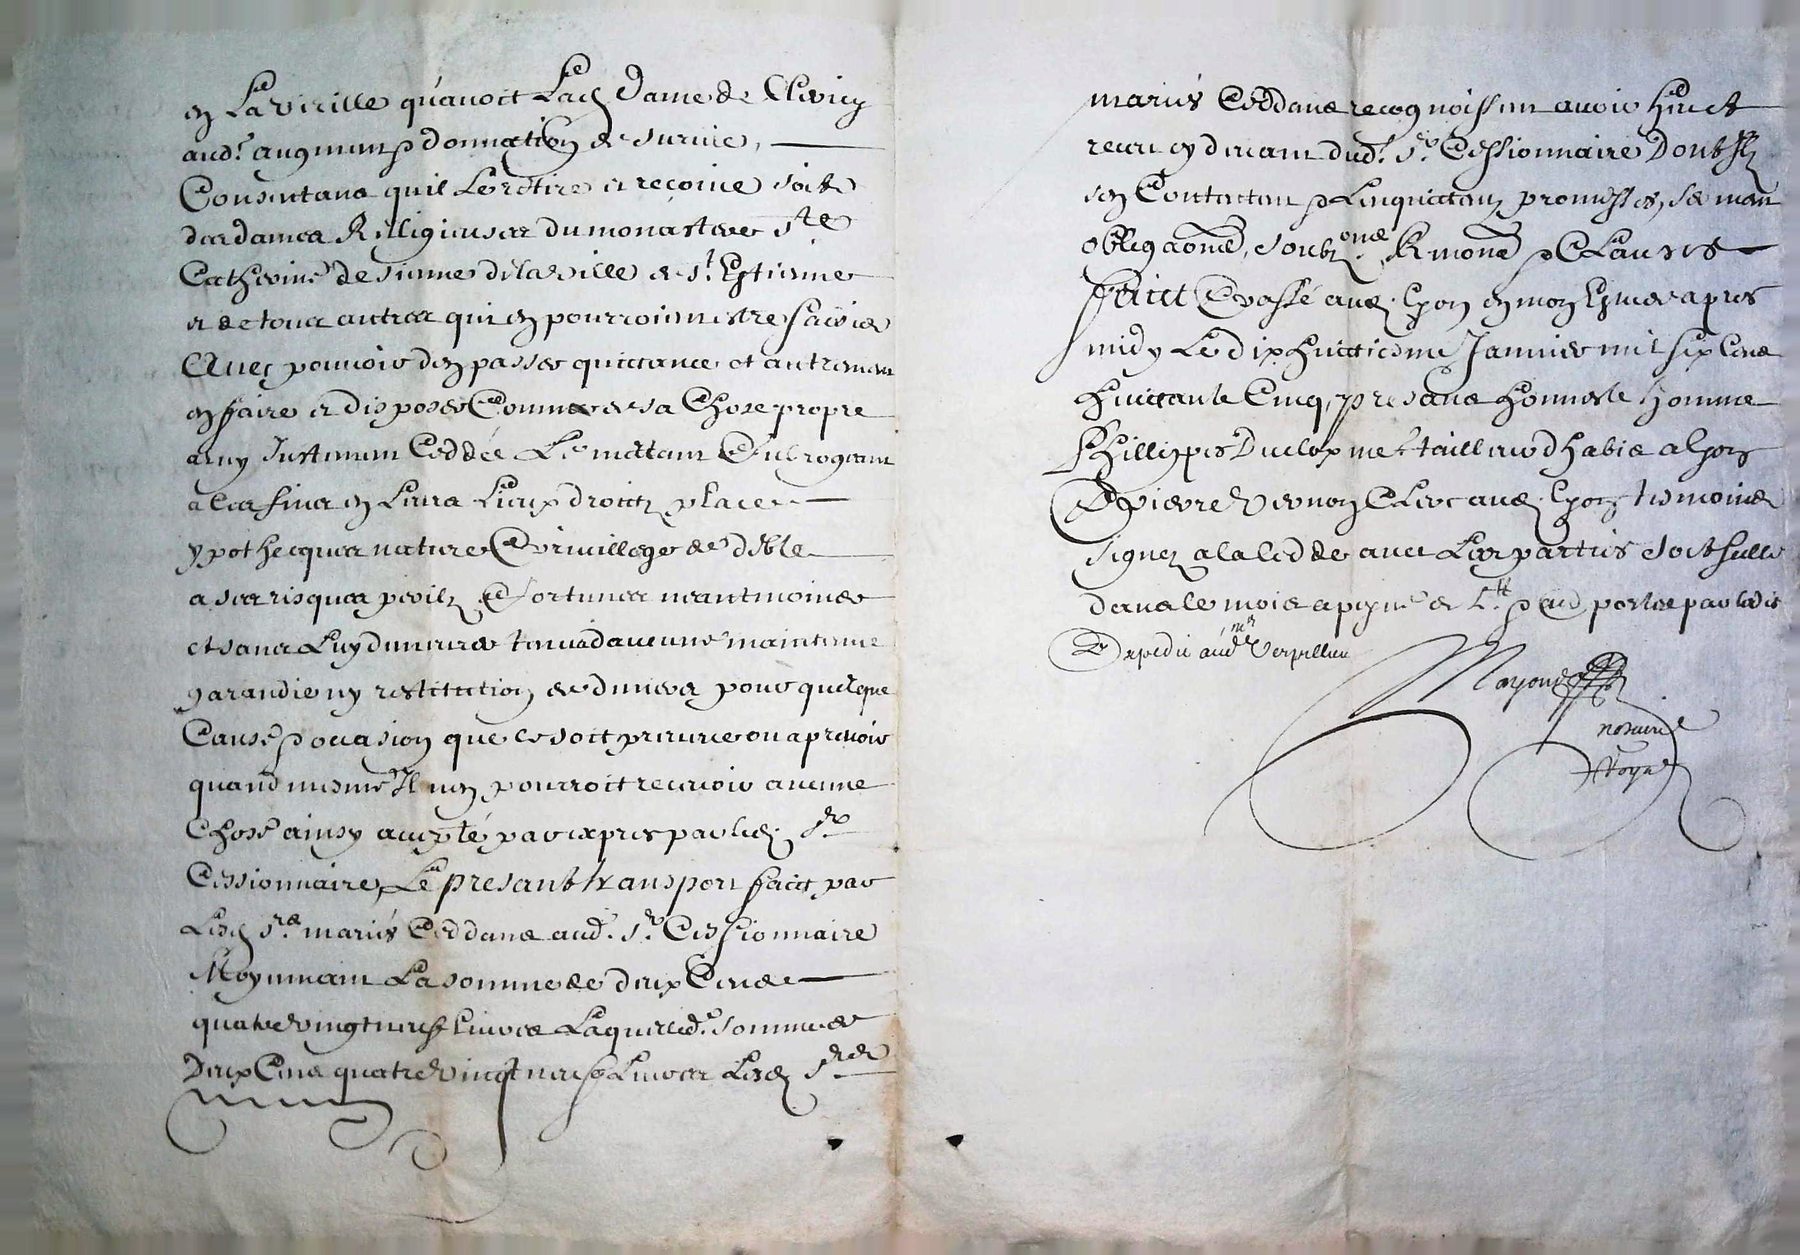 en La virille qu'avoit Lad Dame de
aud.t augment & donnation de survie,
Consentans quil Le retire et reçoive soit de
des dames Religieuses du monastere Ste
Catherine de sienne de la ville de St Estienne
et de tous autres qui en pourroient estre saisies
Avec pouvoir den passer quittance et autrement
en faire et disposer Comme de sa Chose propre
a luy Justement Ceddée Le mettant & subrogeant
a ces fins en Leurs Lieux droits place
ypothecques nature & privillege de
a ses risques perils & fortunes neantmoings
et sans Luy dauceune maintenue
garandie ny restitution de deniers pour quelque
Cause & occasion que ce soit preveue ou a prevoir
quand mesme Il nen pourroit recevoir aucune
Chose ainsy accepté par expres par led. Sr
Cessionnaire, Le presant transport faict par
Lesd Srs mariés Ceddans aud. Sr Cessionnaire
Moyennant La somme de deux Cens
quatre vingt neuf Livres Laquelle d. somme de
Deux Cens quatre vingt neuf Livres Lesd Srs
mariés Ceddans recognoissent avoir heu et
receu cy devant dud. Sr Cessionnaire Dont
sen Contentent & Len quittent promesses, serment
obligaõns, soubz.ons Renonõns & Clauses
Faict & passé aud. Lyon en mon Estude apres
midy Le dix huictiesme Janvier mil six Cens
huictante Cinq, presans honneste homme
Phillippes Duclos me taillieur d habis a Lyon
& pierre Vernon Clerc aud. Lyon tesmoings
signez a la Cedde avec Les parties soit sellé
dans le mois a peyne de L.tt & aud. porter par ledit
Expedié aud. Sr Verpillieu
notaire
Royal